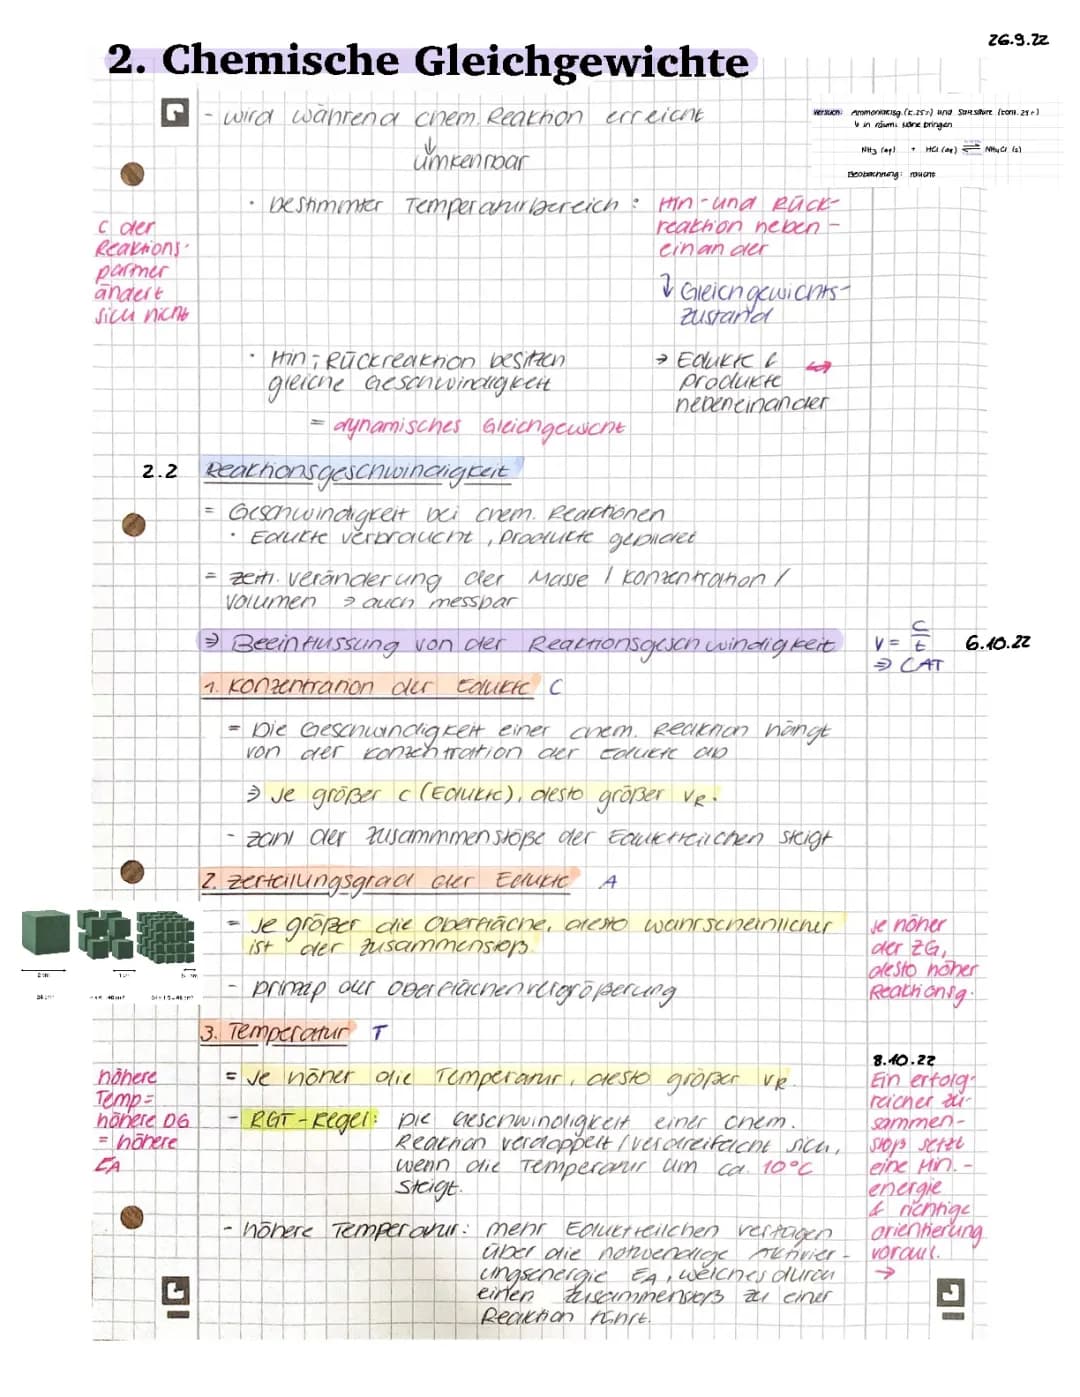 26.9.22
2. Chemische Gleichgewichte
- wird während chem. Reaktion erreicht
↓
umkehrbar
Versuch: Ammoniaklsg. (c. 25%) und Salzsäure (konz. 25%)
↳ in räuml. Nähe bringen
NH3 (aq) + HCl (aq) ⇌ NH4Cl (s)
Beobachtung: raucht
• bestimmter Temperaturbereich : Hin- und Rück-
reaktion neben-
einander
↓ Gleichgewichts-
zustand
c der
Reaktions-
partner
ändert
sich nicht
• Hin-, Rückreaktion besitzen
gleiche Geschwindigkeit
= dynamisches Gleichgewicht
→ Edukte &
Produkte
nebeneinander
2.2 Reaktionsgeschwindigkeit
= Geschwindigkeit bei chem. Reaktionen
• Edukte verbraucht, Produkte gebildet
= zeitl. Veränderung der Masse / Konzentration /
Volumen → auch messbar
⇒ Beeinflussung von der Reaktionsgeschwindigkeit
v = c/t
⇒ CAT
6.10.22
1. Konzentration der Edukte C
= Die Geschwindigkeit einer chem. Reaktion hängt
von der Konzentration der Edukte ab
⇒ Je größer c (Edukte), desto größer vR.
- Zahl der Zusammmenstöße der Eduktteilchen steigt
2. Zerteilungsgrad der Edukte A
= Je größer die Oberfläche, desto wahrscheinlicher
ist der Zusammenstoß.
- Prinzip der Oberflächenvergrößerung
Je höher
der ZG,
desto höher
Reaktionsg.
2 cm
1 cm
3. Temperatur T
= Je höher die Temperatur, desto größer vR.
- RGT-Regel: Die Geschwindigkeit einer chem.
Reaktion verdoppelt / verdreifacht sich,
wenn die Temperatur um ca. 10°C
steigt.
höhere
Temp =
höhere DG
= höhere
EA
- höhere Temperatur: mehr Eduktteilchen verfügen
über die notwendige Aktivier-
ungsenergie EA, welches durch
einen Zusammenstoß zu einer
Reaktion führt.
8.10.22
Ein erfolg-
reicher Zu-
sammen-
stoß setzt
eine Min.-
energie
& richtige
orientierung
voraus.
→